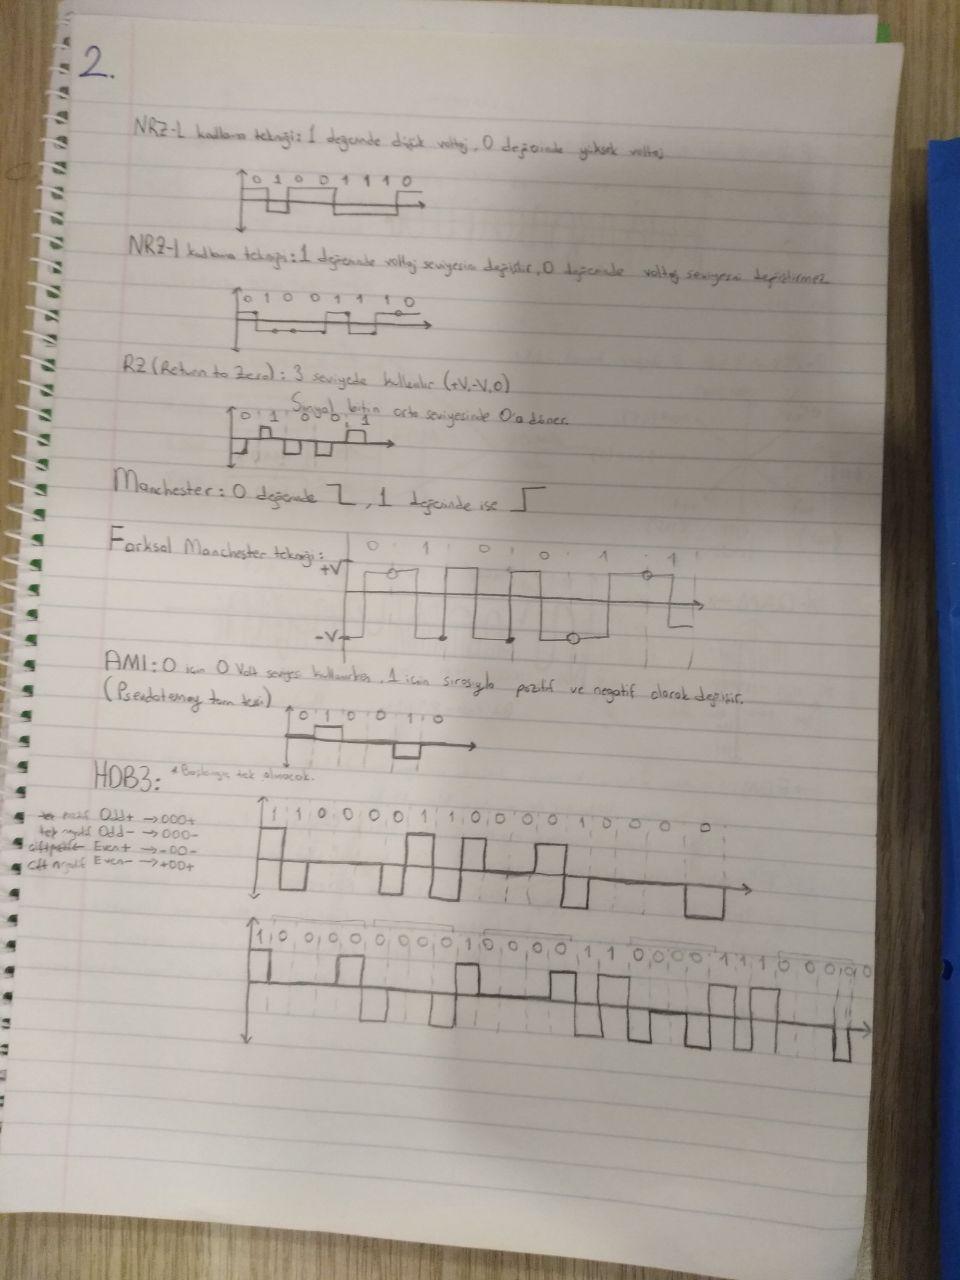 2.
NRZ-L kodlama tekniği: 1 değerinde düşük voltaj, 0 değerinde yüksek voltaj
0 1 0 0 1 1 1 0
NRZ-I kodlama tekniği: 1 değerinde voltaj seviyesini değiştir, 0 değerinde voltaj seviyesini değiştirmez
0 1 0 0 1 1 1 0
RZ (Return to Zero): 3 seviyede kullanılır (+V,-V,0)
Sinyal, bitin orta seviyesinde 0'a döner.
0 1 0 0 1
Manchester: 0 değerinde , 1 değerinde ise
Farksal Manchester tekniği:
0 1 0 0 1 1
+V
-V
AMI: 0 için 0 Volt seviyesi kullanırken, 1 için sırasıyla pozitif ve negatif olarak değişir.
(Pseudoternary tam tersi)
0 1 0 0 1 0
HDB3: * Başlangıç tek olmacak.
1 1 0 0 0 0 1 1 0 0 0 0 1 0 0 0 0
tek pozitif Odd+ → 000+
tek negatif Odd- → 000-
çift pozitif Even+ → -00-
çift negatif Even- → +00+
1 0 0 0 0 0 0 0 0 1 0 0 0 0 1 1 0 0 0 0 1 1 1 0 0 0 0 0